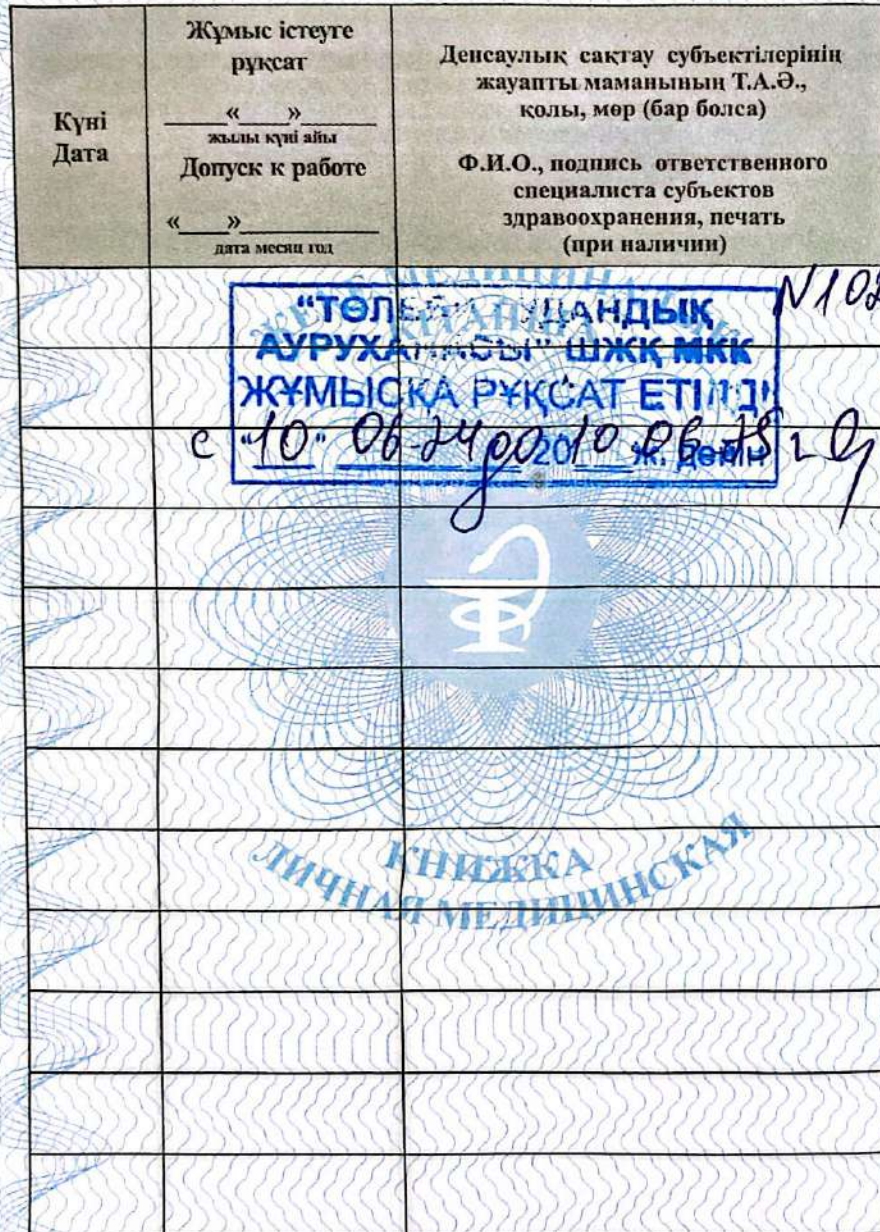 Күні
Дата
Жұмыс істеуге
рұқсат
«___»
жылы күні айы
Допуск к работе
«___»
дата месяц год
Денсаулық сақтау субъектілерінің
жауапты маманының Т.А.Ә.,
қолы, мөр (бар болса)
Ф.И.О., подпись ответственного
специалиста субъектов
здравоохранения, печать
(при наличии)
N102
"ТӨЛЕБИ АУДАНДЫҚ
АУРУХАНАСЫ" ШЖҚ МКК
ЖҰМЫСҚА РҰҚСАТ ЕТІЛДІ
с "10" 06-24 до 20 10 ж. 06 25 г дейін
КНИЖКА
ЛИЧНАЯ МЕДИЦИНСКАЯ